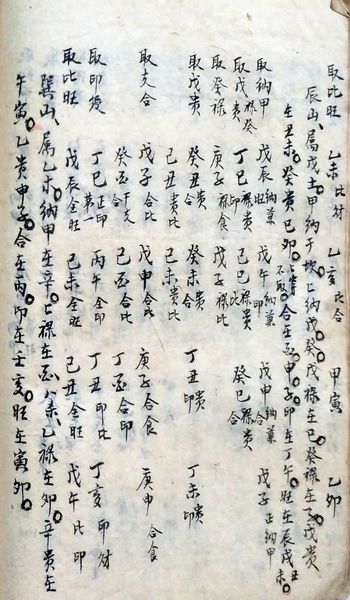 取比旺 乙未比財 乙亥比合 甲寅 乙卯
辰山屬戊土甲納于坎上納戊癸戊祿在巳癸祿在子戊貴
在丑未癸貴巳卯不取合在酉申子印在丁午旺在辰戌丑未
取納甲 戊辰旺納 戊午納印 戊申納合 戊子正納甲
取戊癸祿貴 丁巳祿貴印 己巳祿貴比 癸巳祿貴合
取癸祿 庚子祿食 戊子祿比
取戊貴 癸丑貴合 癸未貴合 丁丑貴印 丁未貴印
己丑貴比 己未貴比
取支合 戊子合比 戊申合比 庚子合食 庚申合食
癸酉干支合 己酉合比 丁酉合印
取印綬 丁巳正印第一 丙午全印 丁丑印比 丁亥印財
取比旺 戊辰全旺 己未全旺 己丑全旺 戊午比印
巽山屬乙木納甲在辛上祿在酉乙祿在卯辛貴在
午寅乙貴申子合在丙印在壬亥旺在寅卯